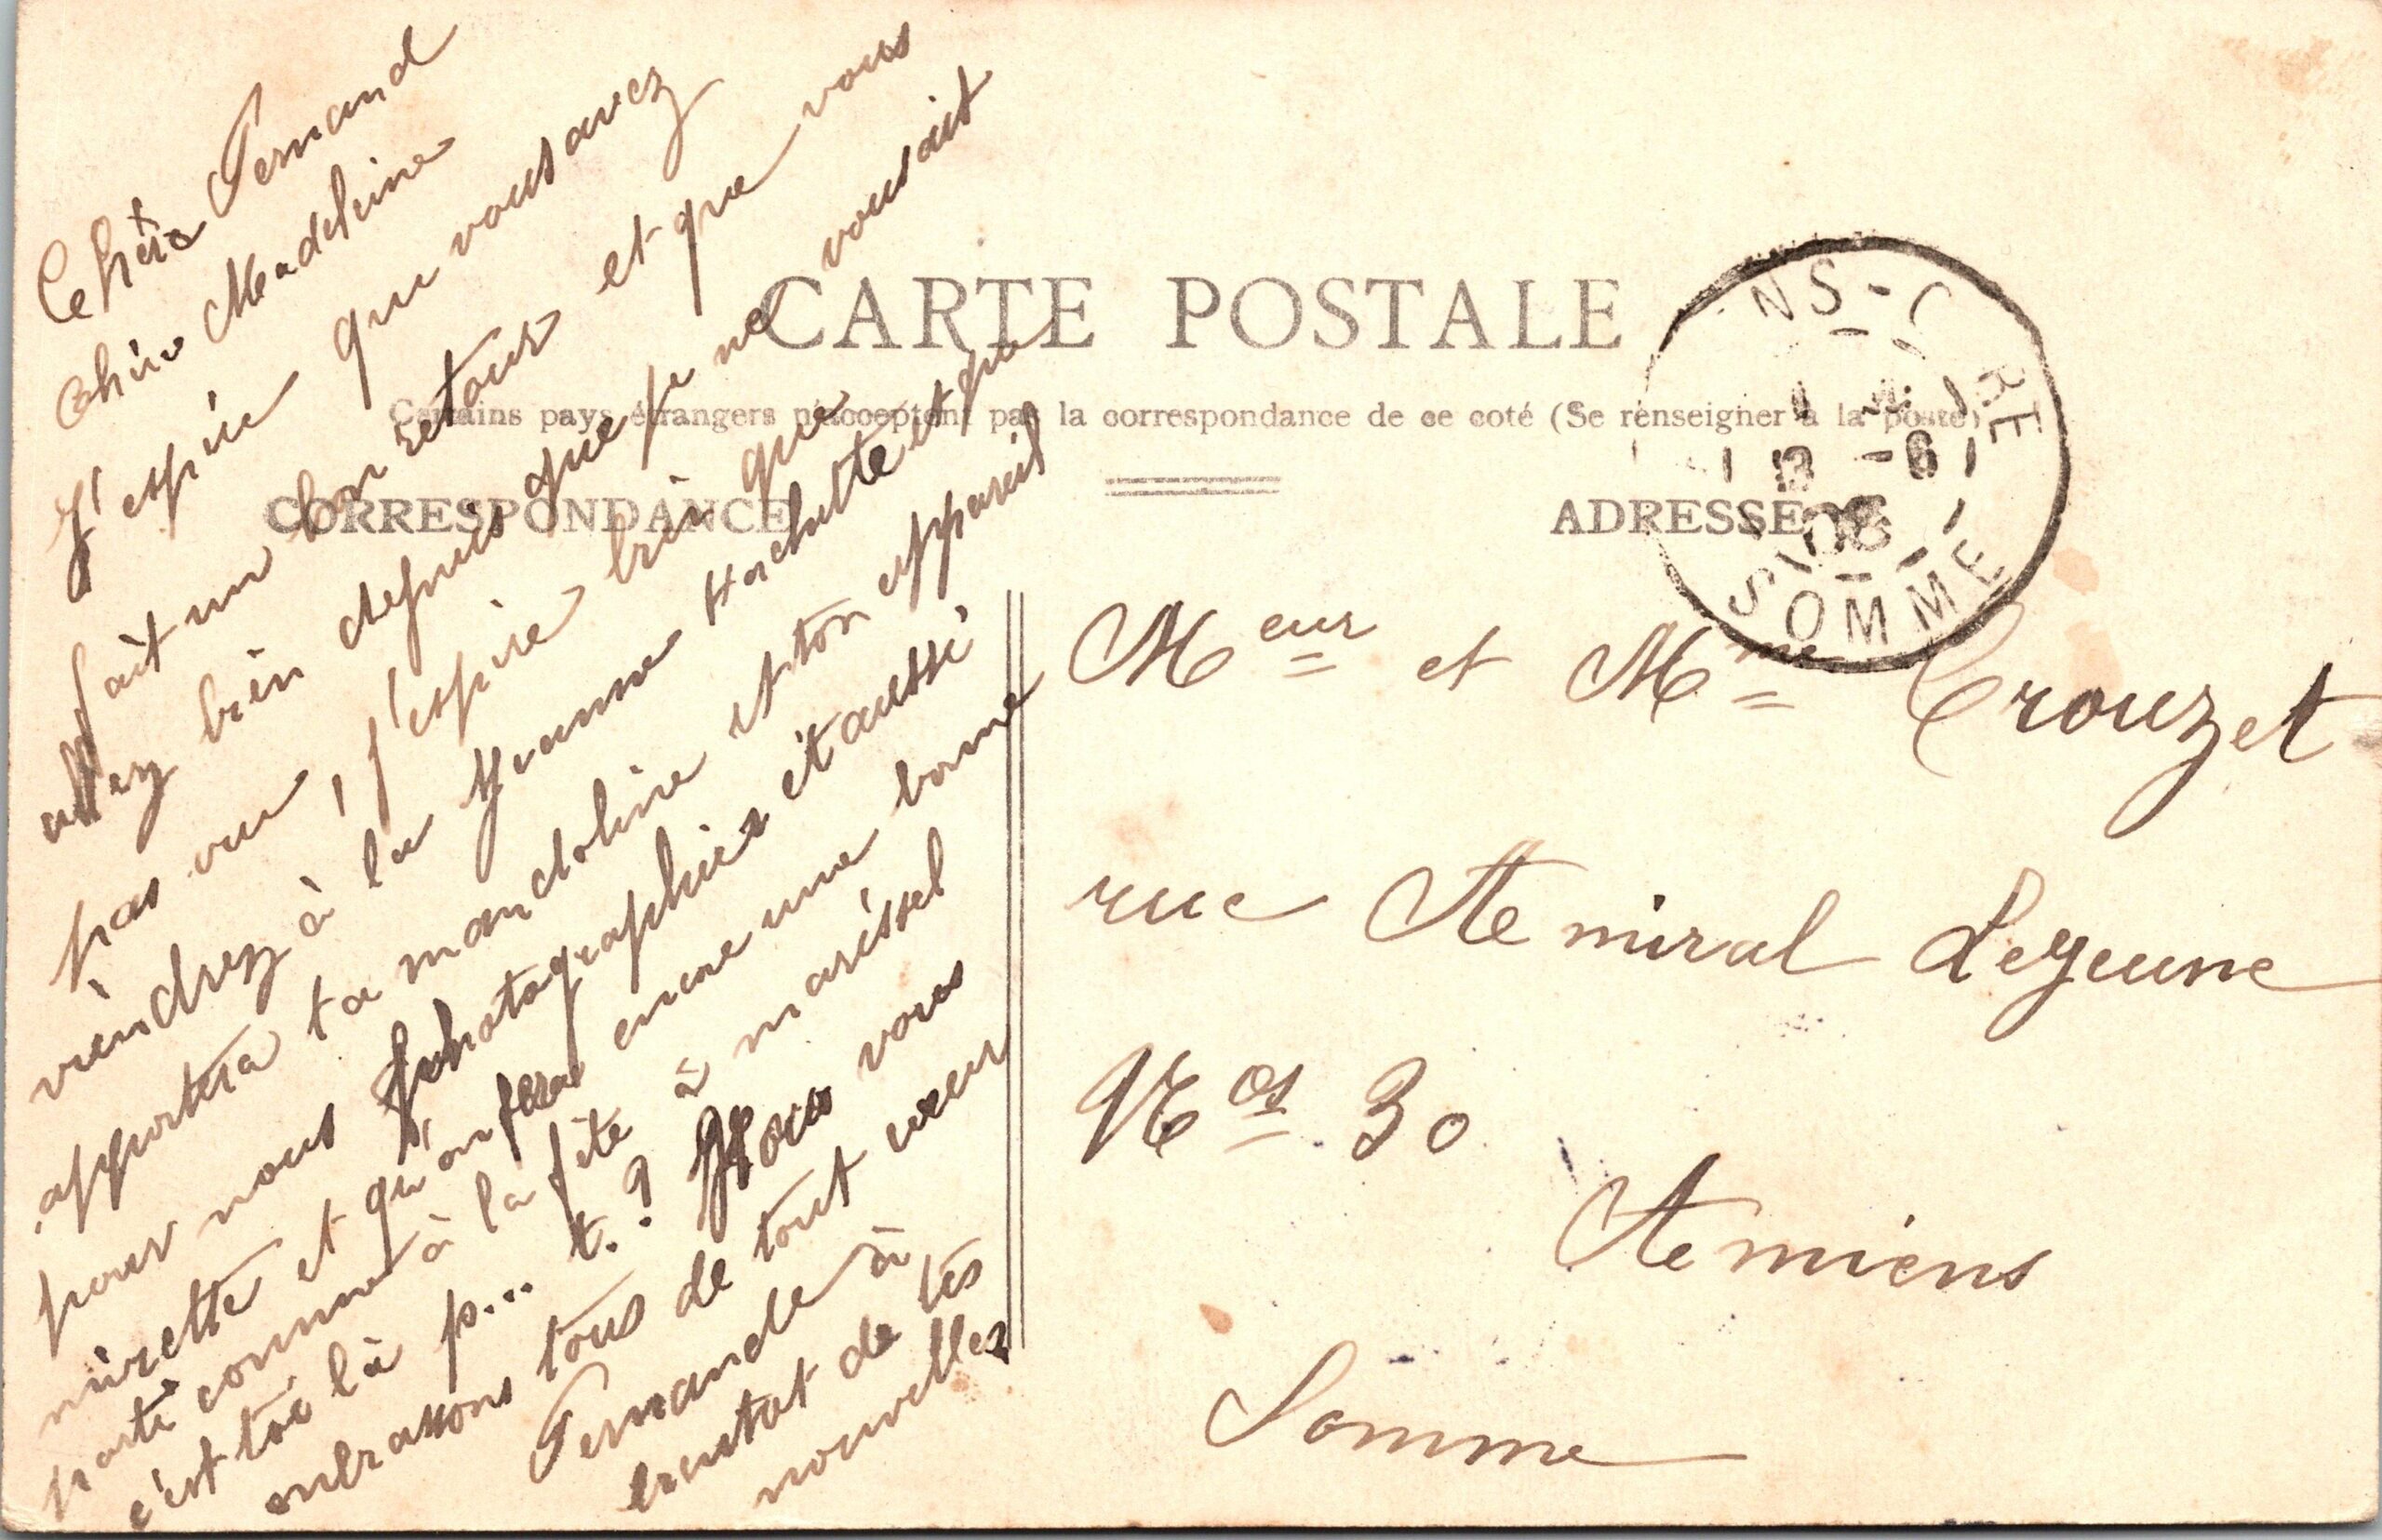 CARTE POSTALE
Certains pays étrangers n'acceptent pas la correspondance de ce coté (Se renseigner à la poste)
CORRESPONDANCE
ADRESSE
SOMME
13 -6
08
Fernand
chère Madeleine
J'espère que vous avez
fait un bon retour et que vous
allez bien depuis que je ne vous ait
pas vu, j'espère bien que
viendrez à la Yvonne Hachette et que
apportera ta mandoline et ton appareil
pour nous photographier et aussi
mirette et qu'on feras encore une bonne
partie comme à la fête à marissel
c'est toi là p... t. ? Nous vous
enbrassons tous de tout cœur
Fernande à
bientot de tes
nouvelles
Meur et Mme Crouzet
rue Amiral Lejeune
Nos 30
Amiens
Somme